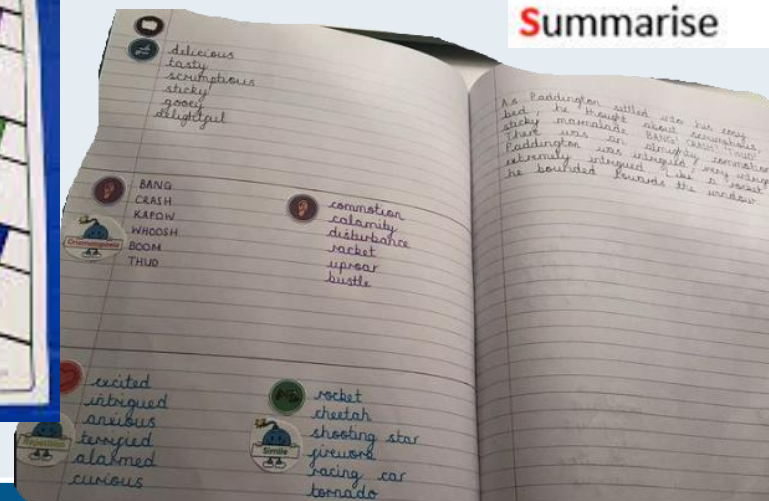 Summarise
delicious
tasty
scrumptious
sticky
gooey
delightful
BANG
CRASH
KAPOW
WHOOSH
BOOM
THUD
Onomatopoeia
commotion
calamity
disturbance
racket
uproar
bustle
excited
intrigued
anxious
terrified
alarmed
curious
Repetition
rocket
cheetah
shooting star
firework
racing car
tornado
Simile
As Paddington settled into his cosy
bed, he thought about scrumptious,
sticky marmalade. BANG! CRASH! THUD!
There was an almighty commotion
Paddington was intrigued, very intrigued
extremely intrigued. Like a rocket
he bounded towards the window